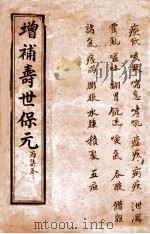 痰飲 咳嗽 喘急 哮吼 瘧疾 痢疾 泄瀉
霍亂 嘔吐 翻胃 噯氣 吞酸 嘈雜
諸氣 痞滿 膨脹 水腫 積聚 五疸
增補壽世保元 丙集卷